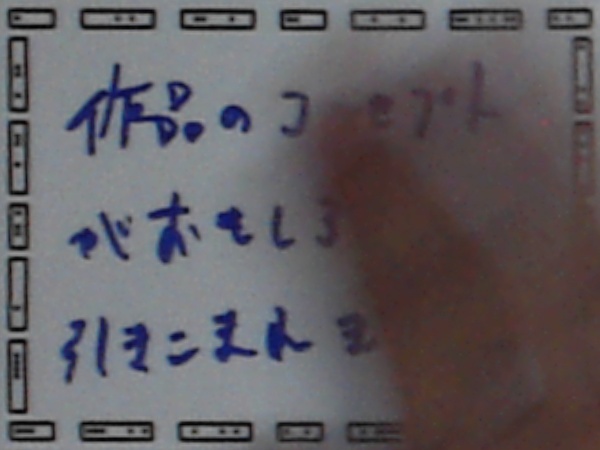 作品のコンセプト
がおもしろ
引きこまれま